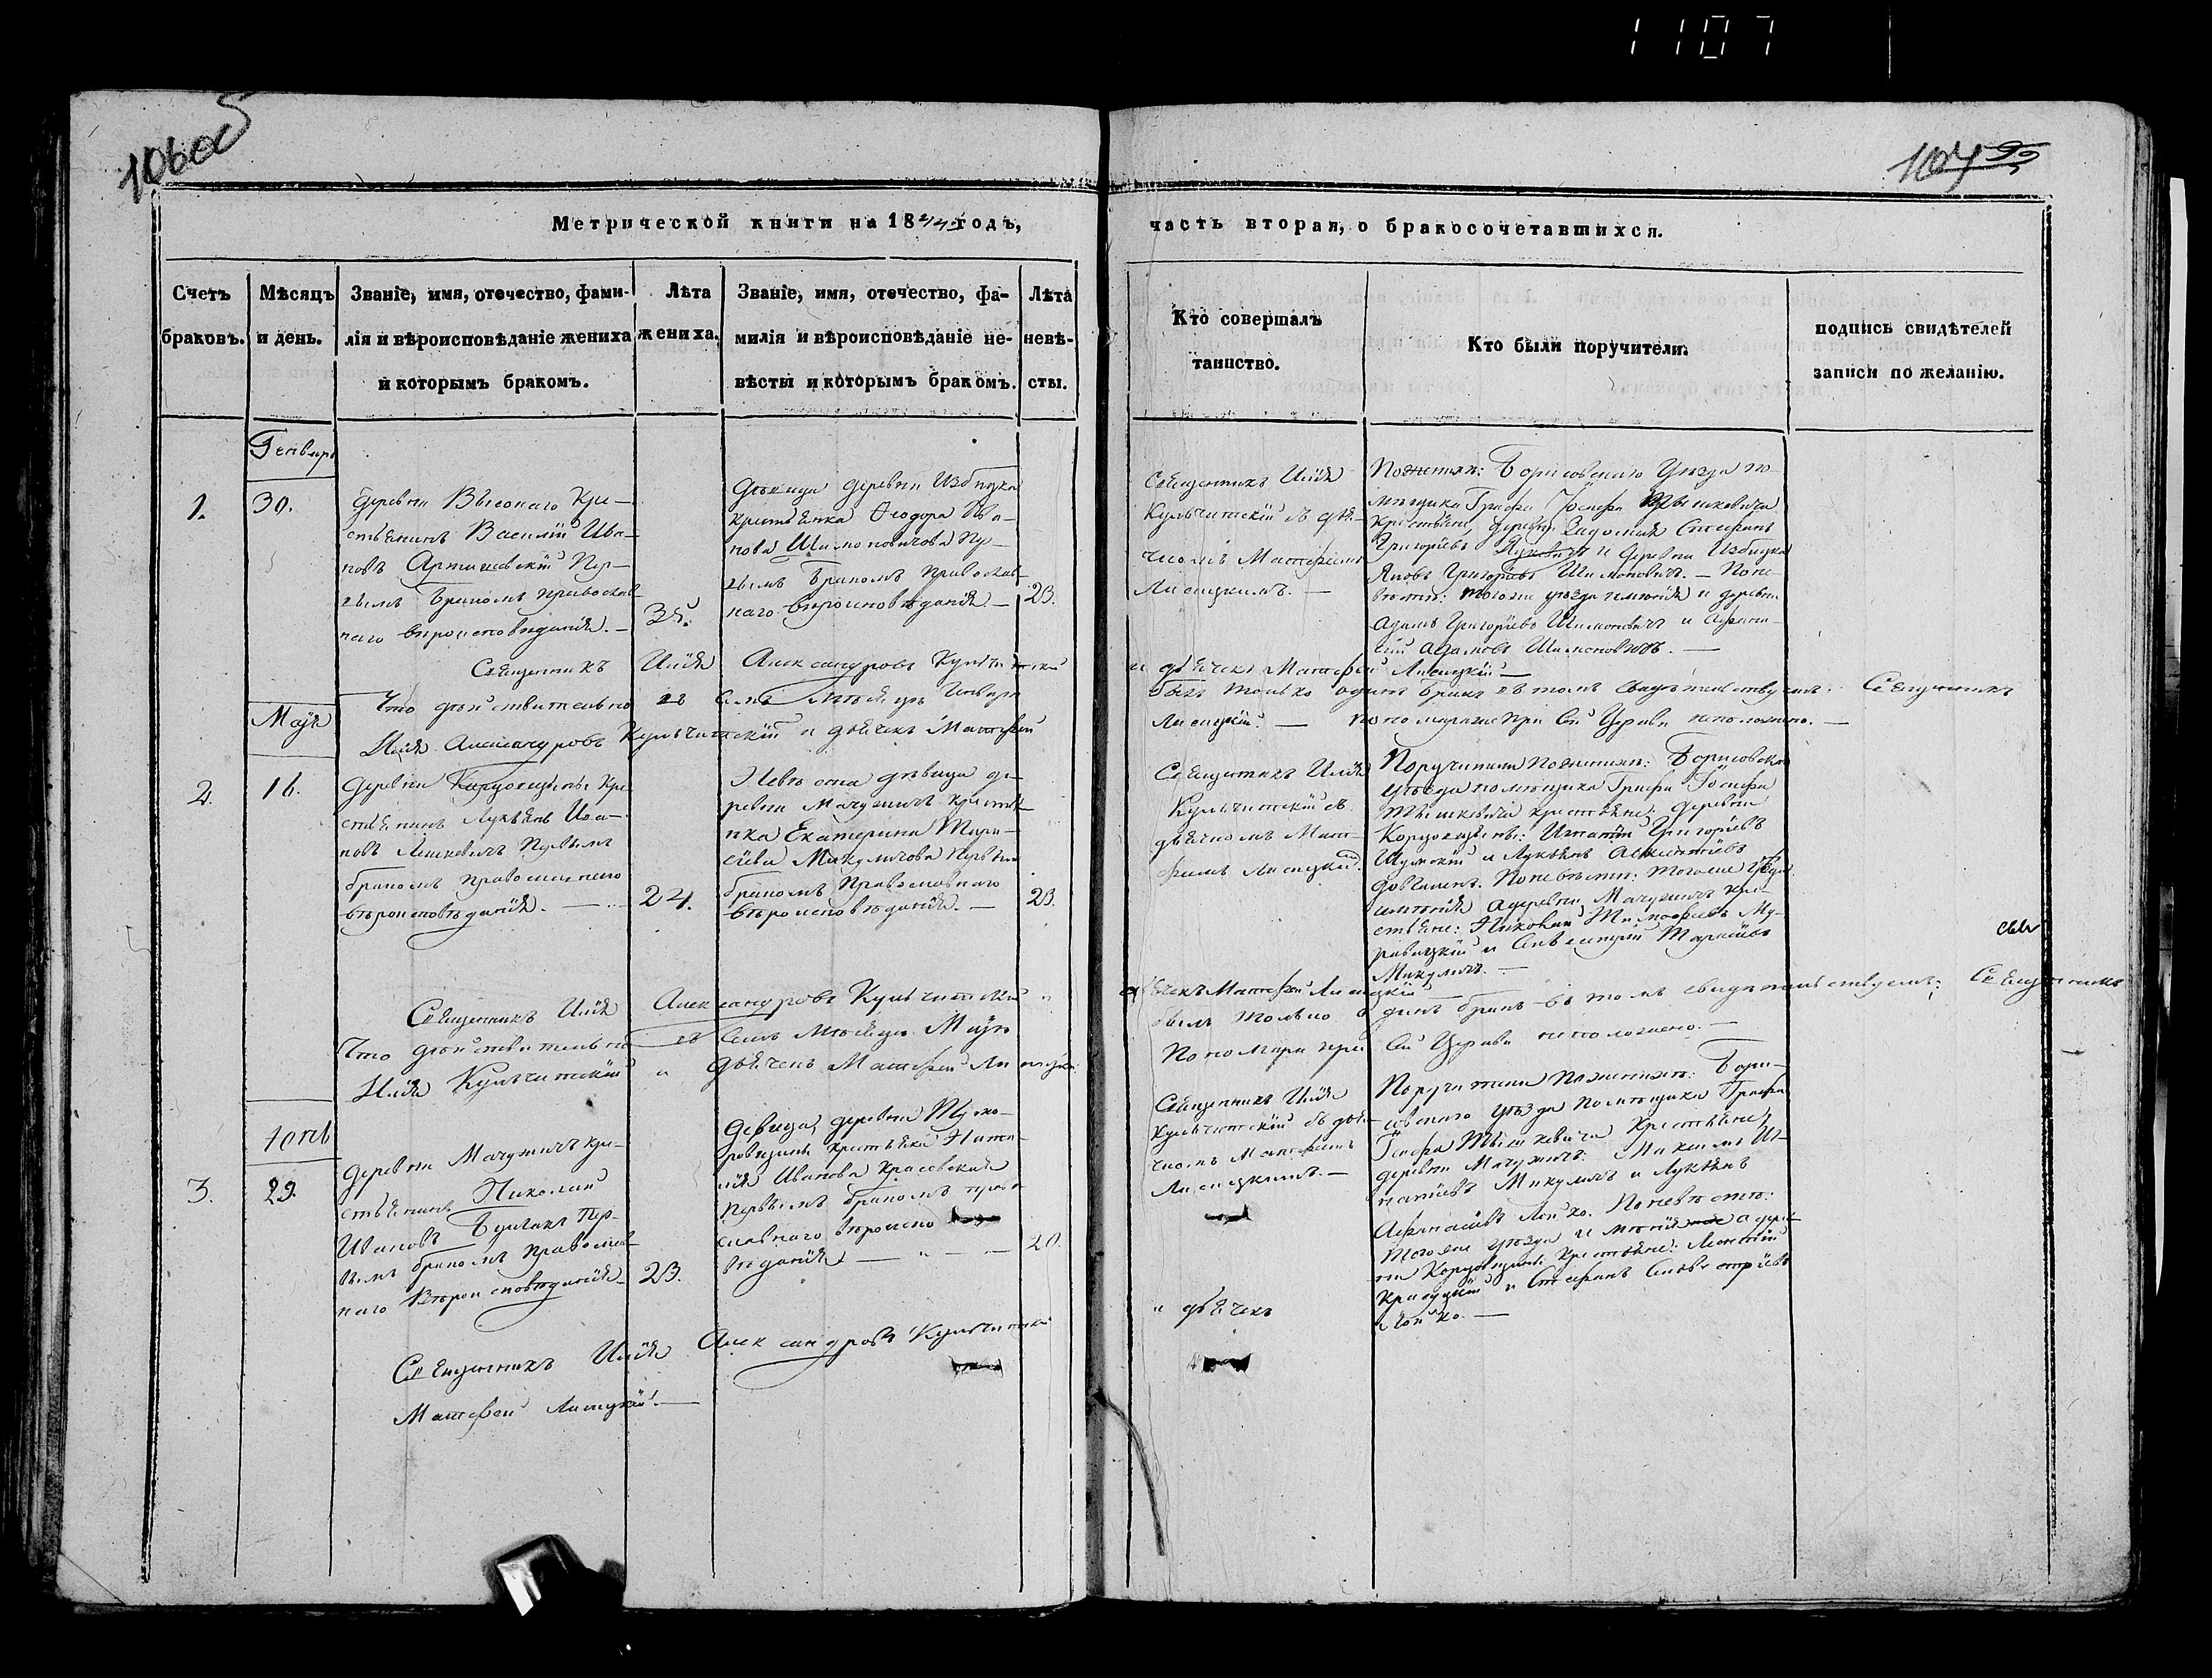 1107
106об
107
Метрической книги на 1844 годъ,
часть вторая, о бракосочетавшихся.
Счетъ браковъ.
Мѣсяцъ и день.
Званіе, имя, отечество, фами-
лія и вѣроисповѣданіе жениха
и которымъ бракомъ.
Лѣта
жениха.
Званіе, имя, отечество, фа-
милія и вѣроисповѣданіе не-
вѣсты и которымъ бракомъ.
Лѣта
невѣ-
сты.
Кто совершалъ
таинство.
Кто были поручители.
подпись свидѣтелей
записи по желанію.
Генваря
1.
30.
Деревни Высокаго Кре-
стьянинъ Василій Ива-
новъ Артишевскій Пер-
вымъ бракомъ православ
наго вѣроисповѣданія. —
35.
Дѣвица деревни Избицка
крестьянка Ѳеодора
нова Шимоновичова Пер-
вымъ бракомъ православ
наго вѣроисповѣданія. —
23.
Священникъ Илія
Кульчитскій съ дья-
чкомъ Матфеемъ
Лисицкимъ. —
По женихѣ: Борисовскаго Уѣзда по-
мѣщика Графа Іосифа Тышкевича
Крестьяне деревни Стефанъ
Григорьевъ и деревни Избицка
Яковъ Григорьевъ Шимоновичъ. — По не-
вѣстѣ: тогоже уѣзда имѣнія и деревни
Адамъ Григорьевъ Шимоновичъ и
Адамовъ Шимоновичъ. —
Священникъ Илія Александровъ Кульчитскій
и дьячекъ Матфей Лисицкій —
Что дѣйствительно въ семъ мѣсяцѣ Генварѣ
былъ только одинъ бракъ въ томъ свидѣтельствуемъ: Священникъ
Илія Александровъ Кульчитскій и дьячекъ Матфей
Лисицкій. — пономаря же при сей Церкви неположено. —
Маія
2.
16.
Деревни Кордонщины кре
стьянинъ Лукьянъ Ива-
новъ Лешкевичъ Первымъ
бракомъ православнаго
вѣроисповѣданія. —
24.
Невѣста дѣвица де-
ревни Мачужичъ крестья
нка Екатерина Тара-
сіева Микуличова Первымъ
бракомъ Православнаго
вѣроисповѣданія. —
23.
Священникъ Илія
Кульчитскій съ
дьячкомъ Мат-
феемъ Лисицкимъ.
Поручители по женихѣ: Борисовскаго
уѣзда помѣщика Графа Іосифа
Тышкевича крестьяне деревни
Кордонщины: Игнатій Григорьевъ
Шумскій и Лукьянъ
По невѣстѣ: тогоже уѣзда
имѣнія и деревни Мачужичъ кре-
стьяне: Николай Тимофеевъ Му-
равицкій и Сильвестръ Тарасіевъ
Микуличъ. —
Священникъ Илія Александровъ Кульчитскій и
дьячекъ Матфей Лисицкій —
Что дѣйствительно въ семъ мѣсяцѣ Маіѣ
былъ только одинъ бракъ въ томъ свидѣтельствуемъ: Священникъ
Илія Кульчитскій и дьячекъ Матфей Лисицкій
Пономаря при сей Церкви неположено. —
Іюнь
3.
29.
Деревни Мачужичъ кре-
стьянинъ Николай
Ивановъ Пер-
вымъ бракомъ православ
наго Вѣроисповѣданія
23.
Дѣвица, деревни
крестьянка Ната-
лія Иванова Красовская
Первымъ бракомъ право
славнаго вѣроиспо
вѣданія —
20.
Священникъ Илія
Кульчитскій съ дья-
чкомъ Матфеемъ
Лисицкимъ. —
Поручители по женихѣ: Бори-
совскаго уѣзда помѣщика Графа
Іосифа Тышкевича Крестьяне,
деревни Мачужичъ: Максимъ Иг-
натіевъ Микуличъ и Лукьянъ
Афанасіевъ Лойко. По невѣстѣ:
тогоже уѣзда и имѣнія а дерев
ни Кордонщины крестьяне: Леонтій
и Стефанъ Сильвестріевъ
Лойко. —
Священникъ Илія Александровъ Кульчитскій
и дьячекъ
Матфей Лисицкій. —